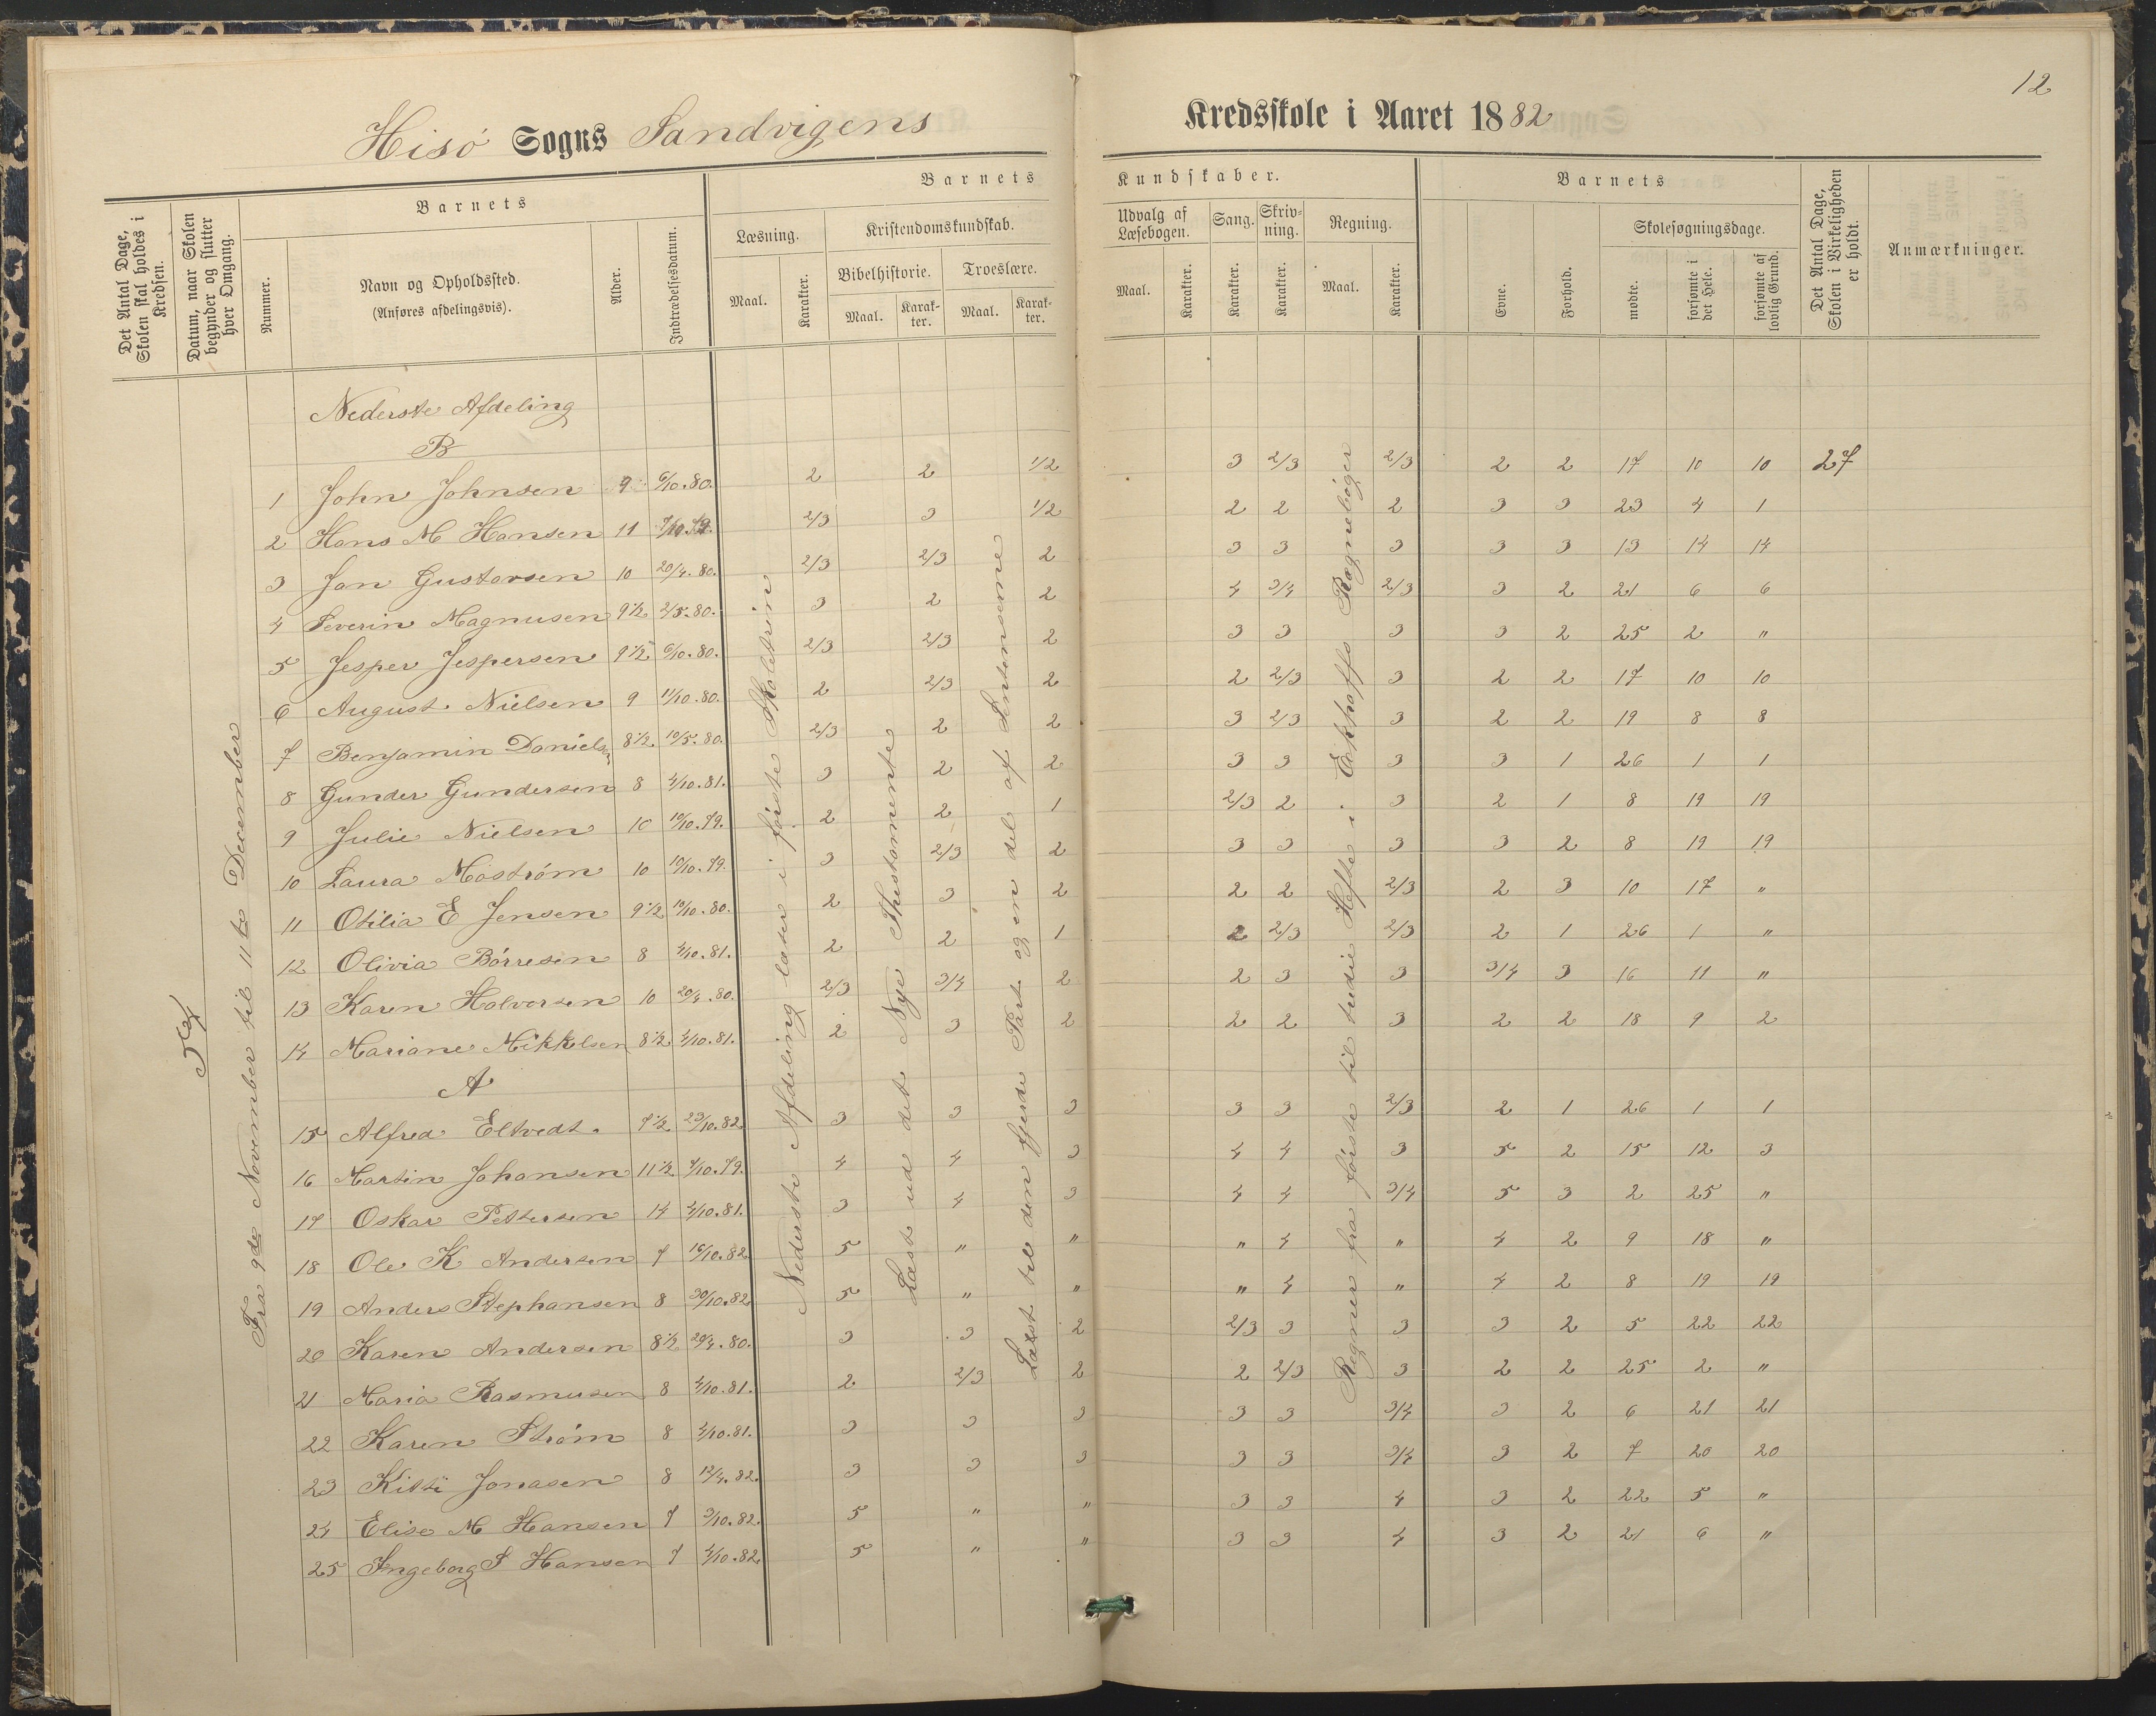 12
Hisø Sogns Sandvigens Kredsskole i Aaret 1882
Det Antal Dage, Skolen skal holdes i Kredsen.
Datum, naar Skolen begynder og slutter hver Omgang.
Barnets
Nummer.
Navn og Opholdssted.
(Anføres afdelingsvis).
Alder.
Indtrædelsesdatum.
Barnets Kundskaber.
Læsning.
Maal.
Karakter.
Kristendomskundskab.
Bibelhistorie.
Maal.
Karakter.
Troeslære.
Maal.
Karakter.
Udvalg af Læsebogen.
Maal.
Karakter.
Sang.
Karakter.
Skrivning.
Karakter.
Regning.
Maal.
Karakter.
Barnets
Evne.
Forhold.
Skolesøgningsdage.
mødte.
forsømte i det Hele.
forsømte af lovlig Grund.
Det Antal Dage, Skolen i Virkeligheden er holdt.
Anmærkninger.
Fra 9de November til 11te December
Nederste Afdeling læser i første Skoletrin
Læst ud det Nye Thestamente
Læst til den fjerde Part og en del af Sentenserne
Regner fra første til tredie Hefte i Eckhoffs Regnebøger
Nederste Afdeling
B
1 John Johnsen 9 6/10.80. 2 2 1/2 3 2/3 2/3 2 2 17 10 10 27
2 Hans M Hansen 11 7/10.79. 2/3 3 1/2 2 2 2 3 3 23 4 1
3 Jan Gustavsen 10 20/4.80. 2/3 2/3 2 3 3 3 3 3 13 14 14
4 Severin Magnusen 9 1/2 2/5.80. 3 2 2 4 3/4 2/3 3 2 21 6 6
5 Jesper Jespersen 9 1/2 6/10.80. 2/3 2/3 2 3 3 3 3 2 25 2 "
6 August Nielsen 9 11/10.80. 2 2/3 2 2 2/3 3 2 2 17 10 10
7 Benjamin Danielsen 8 1/2 10/5.80. 2/3 2 2 3 2/3 3 2 2 19 8 8
8 Gunder Gundersen 8 4/10.81. 3 2 2 3 3 3 3 1 26 1 1
9 Julie Nielsen 10 10/10.79. 2 2 1 2/3 2 3 2 1 8 19 19
10 Laura Moström 10 10/10.79. 3 2/3 2 3 3 3 3 2 8 19 19
11 Otilia E Jensen 9 1/2 10/10.80. 2 3 2 2 2 2/3 2 3 10 17 "
12 Olivia Børresen 8 4/10.81. 2 2 1 2 2/3 2/3 2 1 26 1 "
13 Karen Halvorsen 10 20/4.80. 2/3 3/4 2 2 3 3 3/4 3 16 11 "
14 Mariane Mikkelsen 8 1/2 4/10.81. 2 3 2 2 2 3 2 2 18 9 2
A
15 Alfred Eltvedt. 7 1/2 23/10.82. 3 3 3 3 3 2/3 2 1 26 1 1
16 Martin Johansen 11 1/2 7/10.79. 4 4 3 4 4 3 5 2 15 12 3
17 Oskar Pettersen 14 4/10.81. 3 4 3 4 4 3/4 5 3 2 25 "
18 Ole K Andersen 7 16/10.82 5 " " " 4 " 4 2 9 18 "
19 Anders Stephansen 8 30/10.82. 5 " " " 4 " 4 2 8 19 19
20 Karen Andersen 8 1/2 20/4.80. 3 3 2 2/3 3 3 3 2 5 22 22
21 Maria Rasmusen 8 4/10.81. 2 2/3 2 2 2/3 3 2 2 25 2 "
22 Karen Strøm 8 4/10.81. 3 3 3 3 3 3/4 3 2 6 21 21
23 Kitti Jonasen 8 12/4.82. 3 3 3 3 3 3/4 3 2 7 20 20
24 Elise M Hansen 7 3/10.82. 5 " " 3 3 4 3 2 22 5 "
25 Ingeborg S Hansen 7 4/10.82. 5 " " 3 3 4 3 2 21 6 "